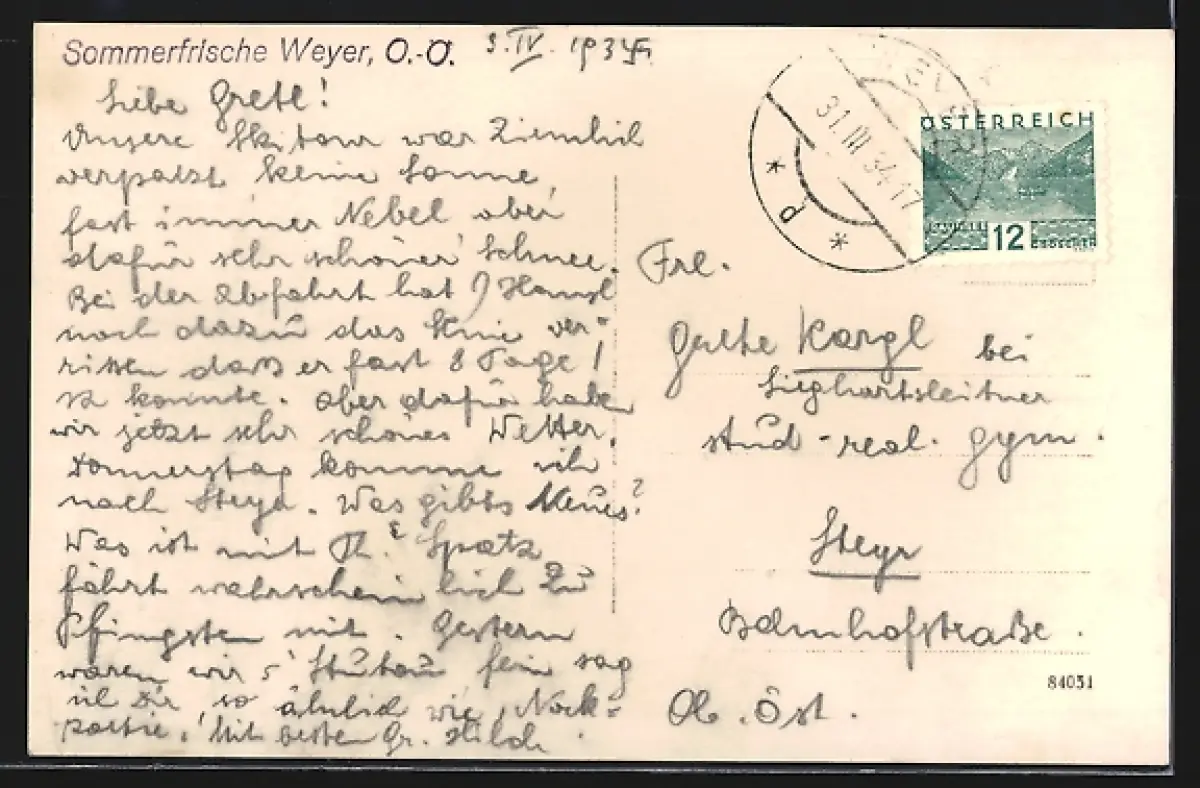 Sommerfrische Weyer, O.-Ö. 3. IV. 1934
Liebe Gretl!
Unsere Skitour war Ziemlich
verpatzt, keine Sonne,
fast immer Nebel, aber
dafür sehr schöner Schnee.
Bei der Abfahrt hat Hansl
noch dazu das Knie ver=
rissen dass er fast 8 Tage
konnte. Aber dafür haben
wir jetzt sehr schönes Wetter.
Donnerstag komme ich
nach Steyr. Was gibts Neues?
Was ist mit Th.? Spatz
fährt wahrscheinlich Zu
Pfingsten mit. Gestern
waren wir fein sag
ich Dir so ähnlich wie Nock=
partie. Mit besten Gr. Hilde
WEYER
31.III.34-17
* P *
ÖSTERREICH
12
GROSCHEN
Frl.
Grethe Kargl bei
Sieghartsleitner
stud. real. gym.
Steyr
Bahnhofstraße.
Ob. Öst.
84031